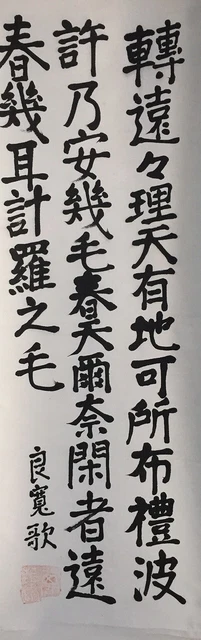 轉遠々理天有地可所布禮波
許乃安幾毛春天爾奈閑者遠
春幾耳計羅之毛
良寬歌